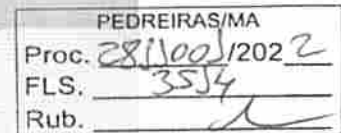 PEDREIRAS/MA
Proc. 2811001/2022
FLS. 3514
Rub.